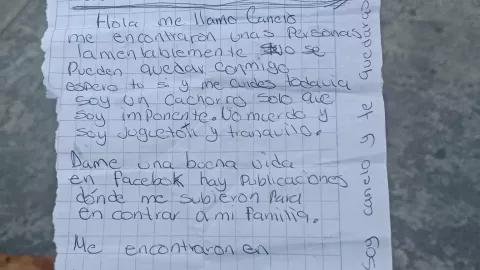 Hola me llamo Canelo
me encontraron unas Personas
lamentablemente no se
Pueden quedar conmigo
espero tu si y me cuides todavia
soy un cachorro solo que
soy imponente. No muerdo y
soy juguetón y tranquilo.
Dame una buena vida
en Facebok hay Publicaciones
dónde me subieron para
en contrar a mi familia.
Me encontraron en
soy canelo y te quedaras